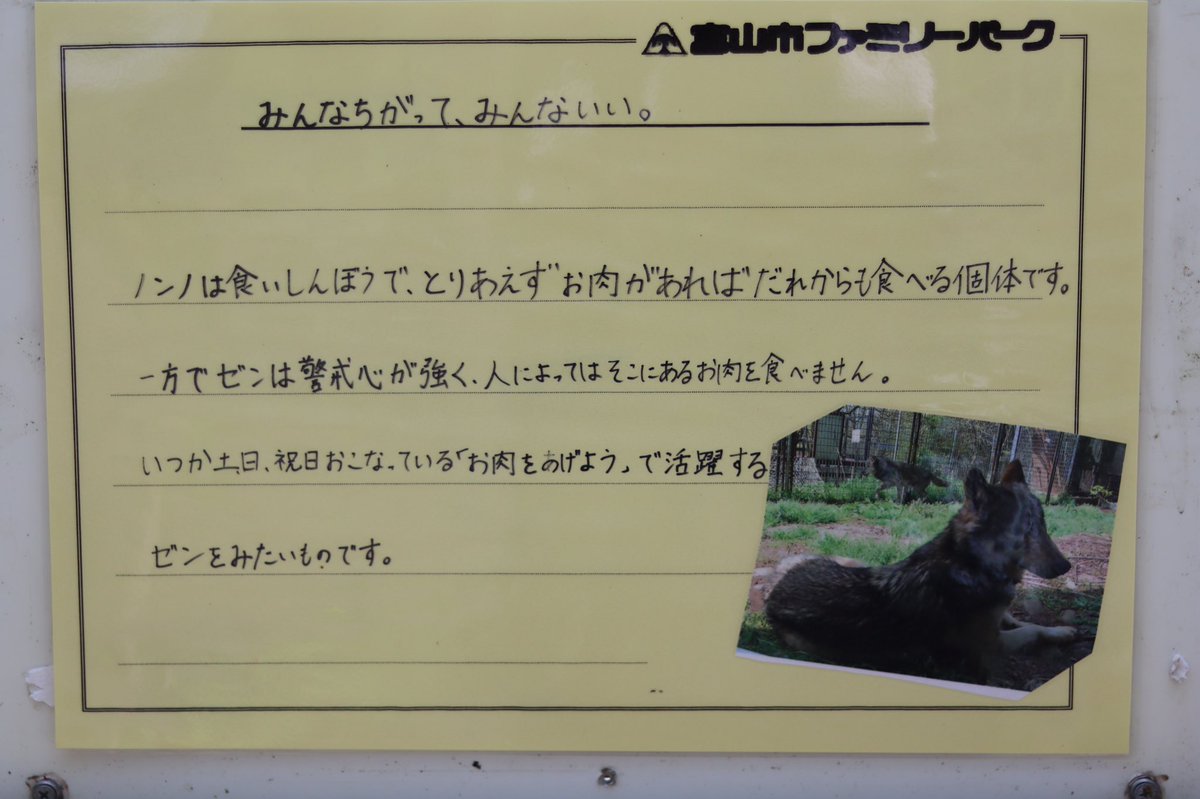 富山市ファミリーパーク
みんなちがって、みんないい。
ノンノは食いしんぼうで、とりあえずお肉があればだれからも食べる個体です。
一方でゼンは警戒心が強く、人によってはそこにあるお肉を食べません。
いつか土、日、祝日おこなっている「お肉をあげよう」で活躍する
ゼンをみたいものです。